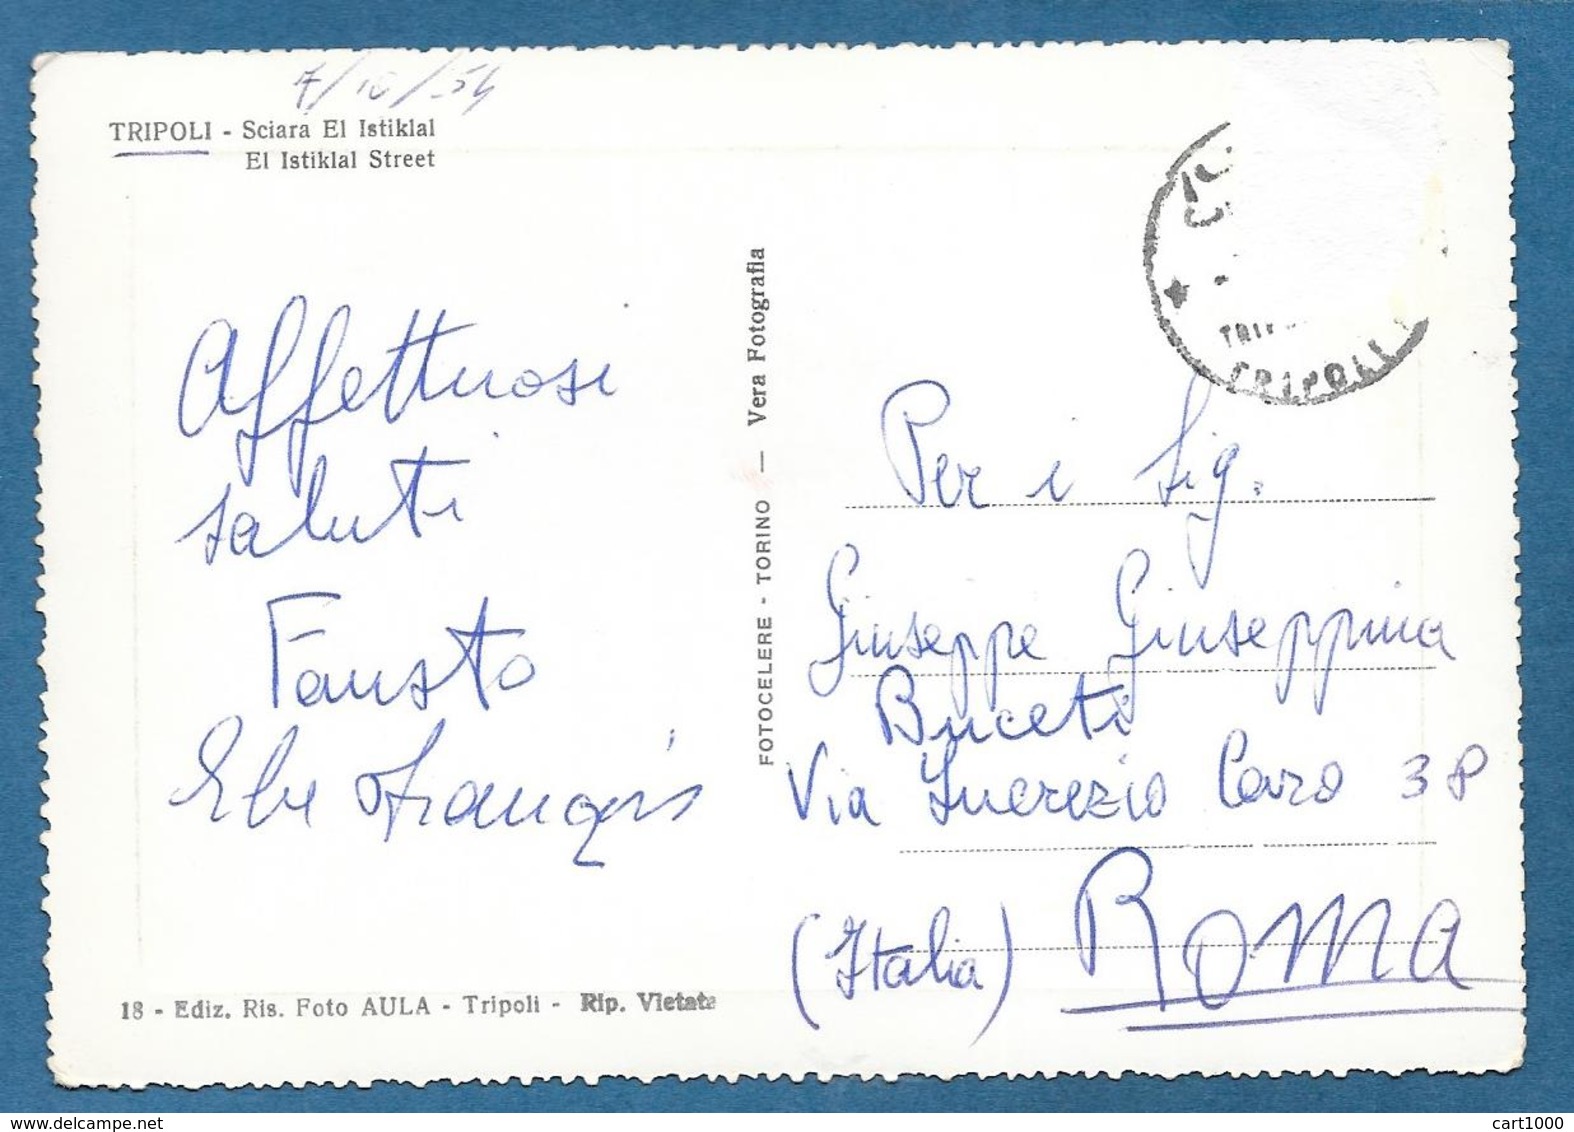 7/10/54
TRIPOLI - Sciara El Istiklal
El Istiklal Street
TRIPOLI
Affettuosi
saluti
Fausto
FOTOCELERE - TORINO — Vera Fotografia
Per i Sig.
Giuseppe Giuseppina
Buceti
Via Lucrezio Caro 38
(Italia) ROMA
18 - Ediz. Ris. Foto AULA - Tripoli - Rip. Vietata
cart1000